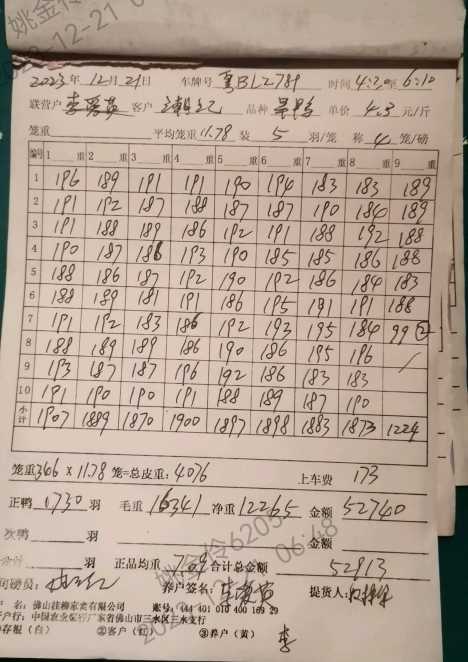 2023年12月21日 车牌号 粤BL2789 时间 4:30至6:10
联营户 客户 品种 单价 4.3 元/斤
笼重 平均笼重 11.78 装 5 羽/笼 称 4 笼/磅
编号 1 重 2 重 3 重 4 重 5 重 6 重 7 重 8 重 9 重
1 196 189 191 191 190 194 183 183 189
2 191 192 187 188 187 187 190 184 189
3 191 188 189 186 192 191 188 192 188
4 190 187 186 193 190 185 185 186 188
5 188 186 187 192 190 192 186 184 183
6 188 189 181 191 186 195 191 191 188
7 191 192 183 186 192 193 195 184 99 ②
8 188 189 189 186 190 186 195 196
9 193 187 187 196 192 186 183 183
10 191 190 190 191 188 189 187 190
小计 1907 1889 1870 1900 1897 1898 1883 1873 1224
笼重 346 × 11.78 笼=总皮重: 4076 上车费 173
正鸭 1730 羽 毛重 16341 净重 12265 金额 52740
次鸭 羽 金额
合计 羽 正品均重 7.09 合计总金额 52913
司磅员: 养户签名: 提货人:
名: 佛山 有限公司 账号: 444 401 010 400 169 29
开户行: 中国农业银行广东省佛山市三水区三水支行
①存根(白) ②客户(红) ③养户(黄)
姚金伶62055
2023-12-21 06:48